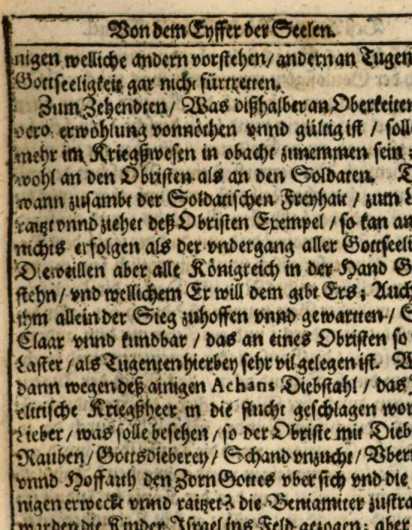 Von dem Eyffer der Seelen.
nigen welliche andern vorstehen/ andern an Tugen
Gottseeligkeit gar nicht fürtretten.
Zum Zehendten/ Was dißhalber an Oberkeiten
vero erwöhlung vonnöthen vnnd gültig ist / soll
mehr im Kriegßwesen in obacht zunemmen sein
wohl an den Obristen als an den Soldaten.
wann zusambt der Soldatischen Freyhait / zum
raitzt vnnd ziehet deß Obristen Exempel / so kan an
nichts erfolgen als der vndergang aller Gottseeli
Dieweillen aber alle Königreich in der Hand G
stehn/ vnd wellichem Er will dem gibt Ers; Auch
ihm allein der Sieg zuhoffen vnnd gewartten /
Claar vnnd kundbar / das an eines Obristen so
Laster / als Tugenten hierbey sehr vil gelegen ist.
dann wegen deß ainigen Achans Diebstahl / das
elitische Kriegßheer in die flucht geschlagen wor
Lieber / was solle besehen / so der Obriste mit Dieb
Rauben/ Gottsdieberey/ Schand vnzucht/ Vber
vnnd Hoffarth den Zorn Gottes vber sich vnd die
nigen erweckt vnnd raitzet? die Beniamiter zustra
wurden die Kinder Israel ins Feld gezogen; aber